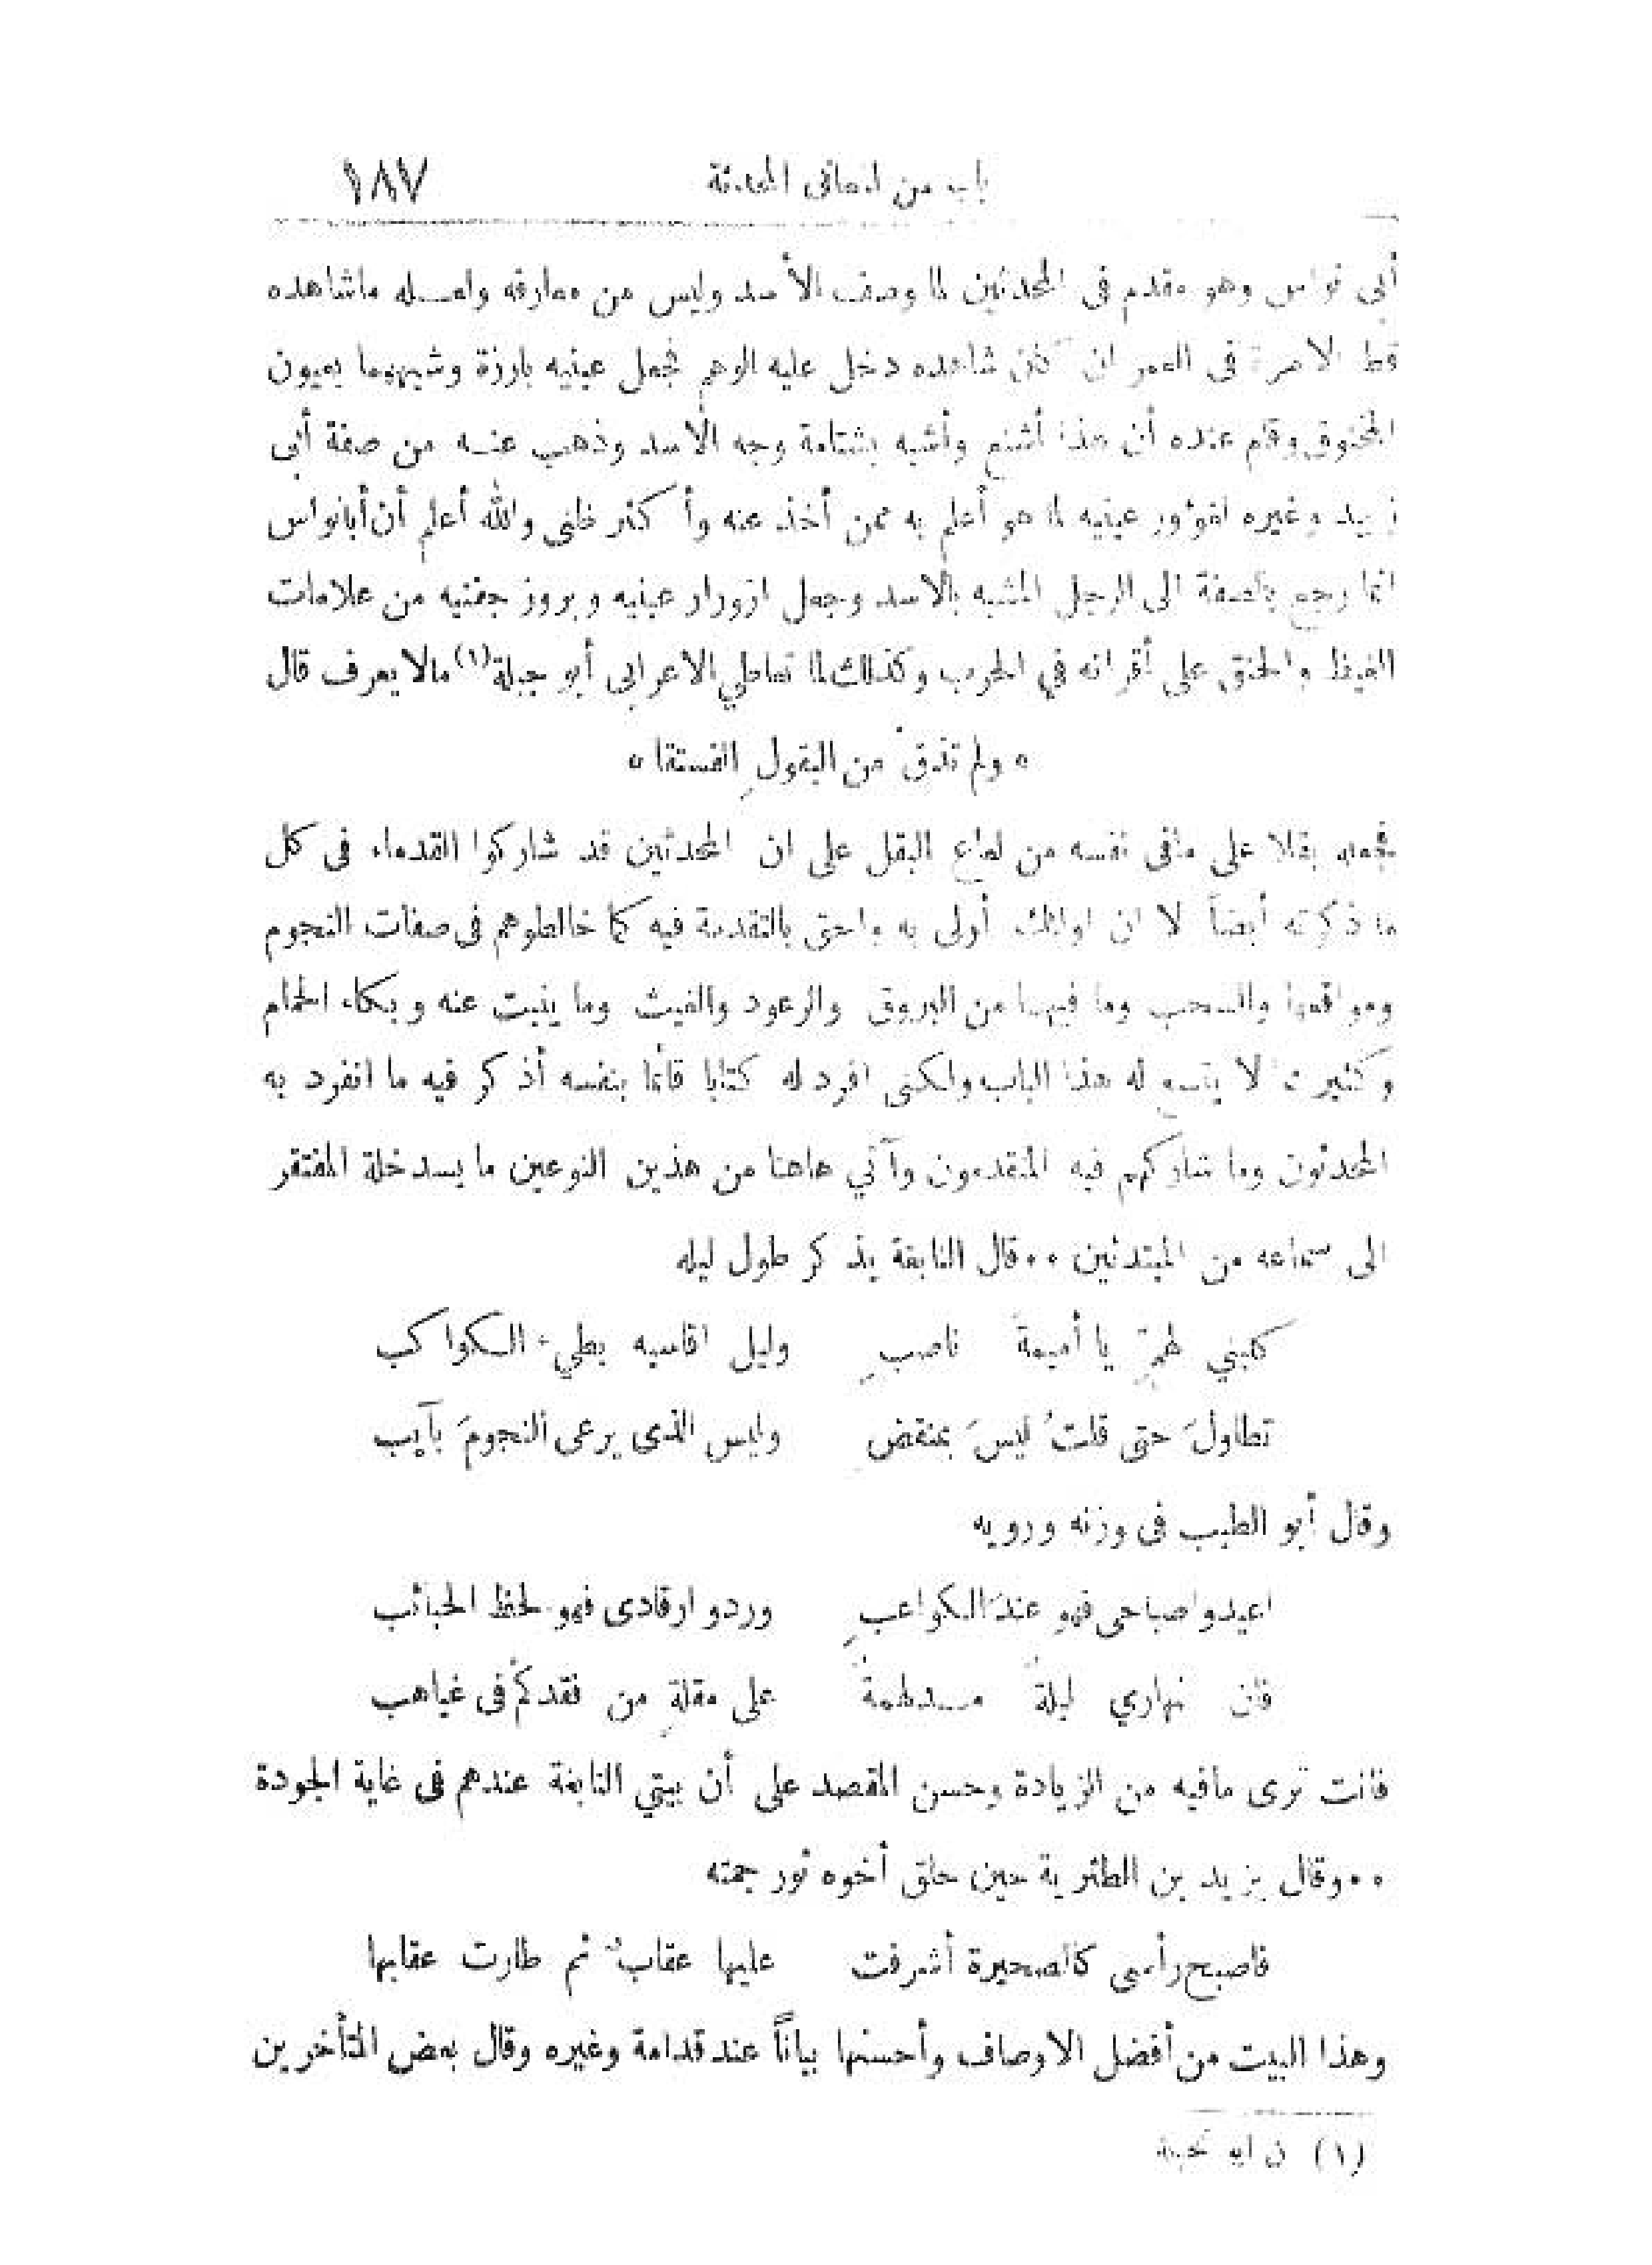 باب من المعاني المحدثة ١٨٧
أبى نواس وهو مقدم فى المحدثين لما وصف الأسد وليس من معارفه ولعله ماشاهده
قط الا مرة فى العمر ان كان شاهده دخل عليه الوهم فجعل عينيه بارزة وشبههما بعيون
المخنوق وقام عنده أن هذا أشنع وأشبه بشتامة وجه الاسد وذهب عنه من صفة أبى
زبيد وغيره لغوٴور عينيه لما هو أعلم به ممن أخذ عنه وأكثر ظنى والله أعلم أن أبانواس
انما رجع بالصفة الى الرجل المشبه بالاسد وجعل ازورار عينيه وبروز جفنيه من علامات
الغيظ والحنق على أقرانه في الحرب وكذلك لما تعاطي الاعرابى أبو جبلة(١) مالا يعرف قال
٥ ولم تذقْ من البقولِ الفستقا ٥
فجعله بقلا على مافى نفسه من لعاع البقل على ان المحدثين قد شاركوا القدماء فى كل
ما ذكرته أيضاً الا ان اولئك أولى به واحق بالتقدمة فيه كما خالطوهم فى صفات النجوم
ومواقعها والسحب وما فيها من البروق والرعود والغيث وما ينبت عنه وبكاء الحمام
وكثير مما لا يتسع له هذا الباب ولكنى افرد له كتابا قائما بنفسه أذكر فيه ما انفرد به
المحدثون وما شاركهم فيه المتقدمون وآتي هاهنا من هذين النوعين ما يسد خلة المفتقر
الى سماعه من المبتدئين ٠٠ قال النابغة يذكر طول ليله
كليني لهمٍّ يا أميمةَ ناصبِ وليل اقاسيه بطيء الكواكب
تطاولَ حتى قلتُ ليسَ بمنقضٍ وليس الذى يرعى النجومَ بآيب
وقال أبو الطيب فى وزنه ورويه
اعيدوا صباحى فهو عندَ الكواعبِ وردو ارقادى فهو لحظ الحبائب
فان نهاري ليلةٌ مدلهمةٌ على مقلةٍ من فقدكمُ فى غياهب
فانت ترى مافيه من الزيادة وحسن المقصد على أن بيتي النابغة عندهم فى غاية الجودة
٠٠ وقال يزيد بن الطثرية حين حلق أخوه ثور جمته
فاصبح رأسى كالصخيرة أشرفت عليها عقابٌ ثم طارت عقابها
وهذا البيت من أفضل الاوصاف وأحسنها بياناً عند قدامة وغيره وقال بعض المتأخرين
(١) ن ابو نخيلة